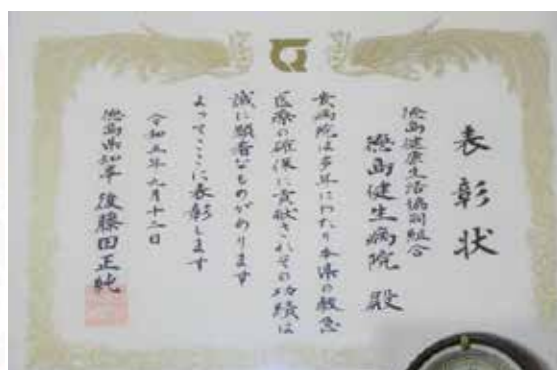 表彰状
徳島健康生活協同組合
徳島健生病院 殿
貴病院は多年にわたり本県の救急
医療の確保に貢献されその功績は
誠に顕著なものがあります
よってここに表彰します
令和五年九月十二日
徳島県知事 後藤田正純